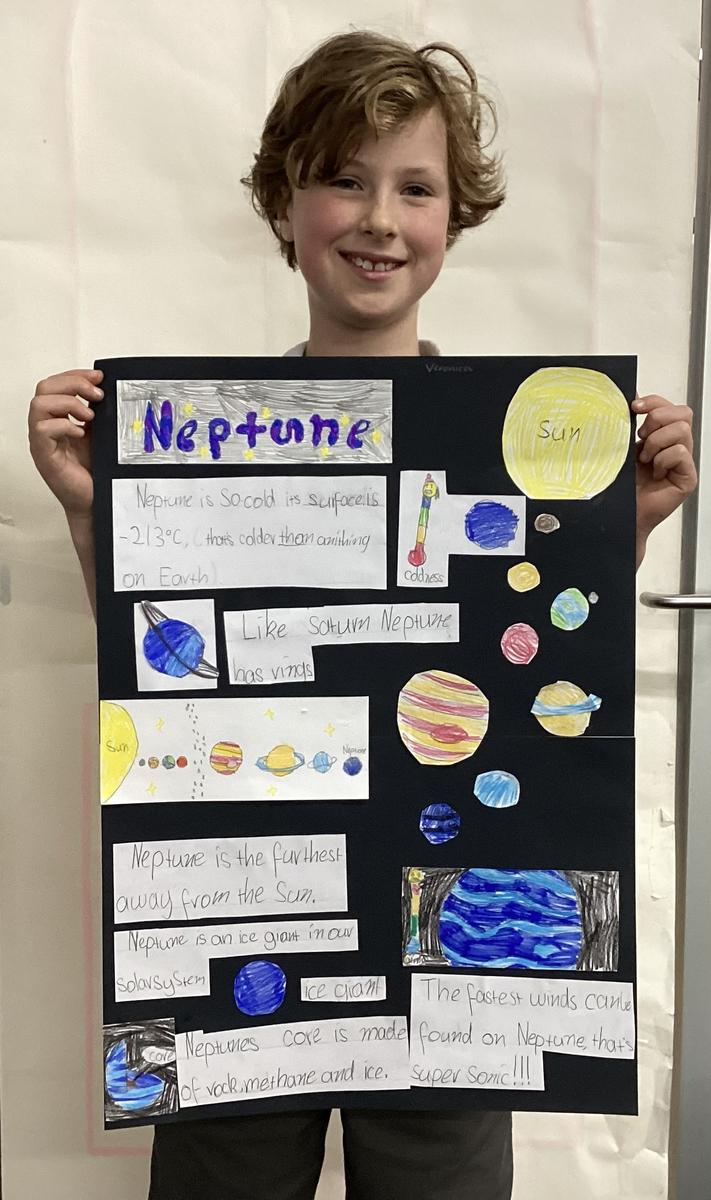 Veronica
Neptune
Sun
Neptune is so cold its surface is
-213°C, (that's colder than anithing
on Earth)
coldness
Like Saturn Neptune
has vings
Sun
Neptune
Neptune is the furthest
away from the Sun.
Neptune is an ice giant in our
solar system
ice giant
core
Neptunes core is made
of rock, methane and ice.
The fastest winds can be
found on Neptune, that's
super sonic!!!